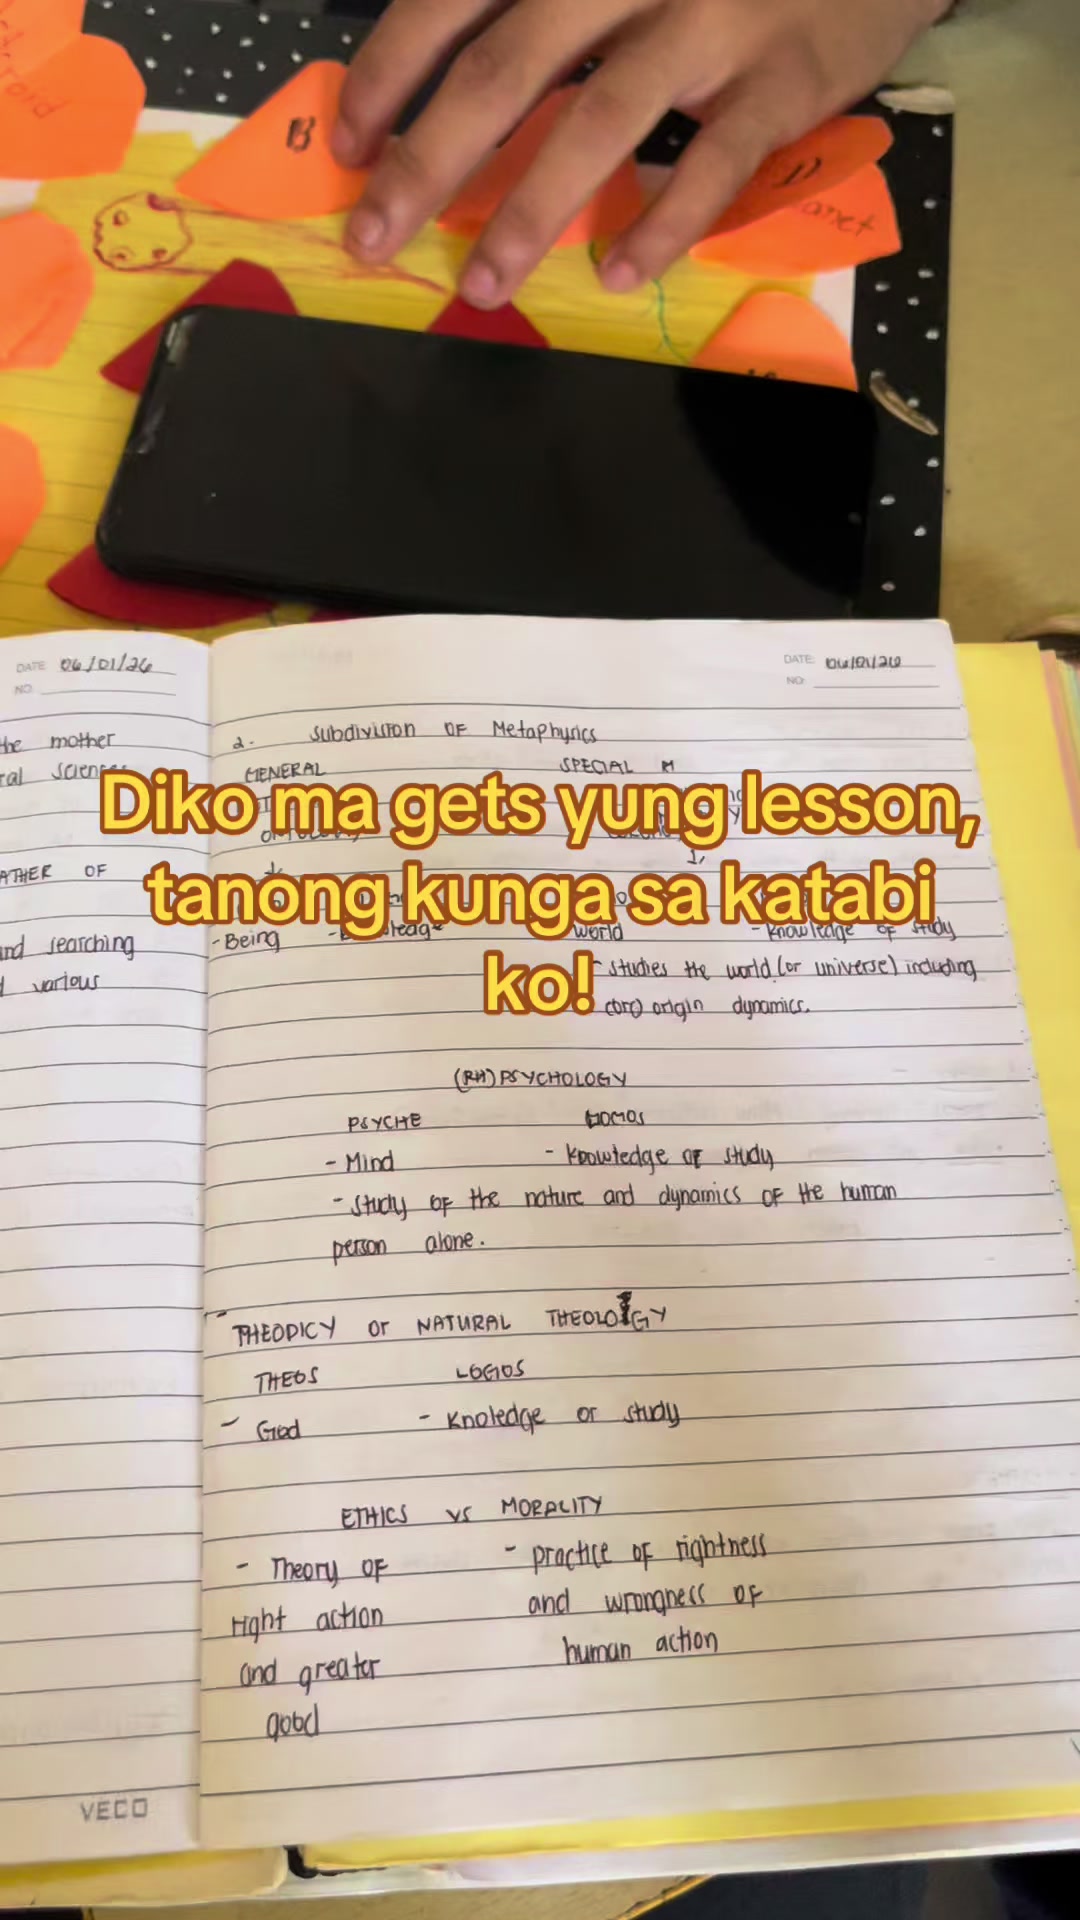 B
DATE 06/01/26
NO.
DATE:
NO:
the mother
ATHER OF
and searching
various
2. Subdivision OF Metaphyrics
GENERAL SPECIAL M
Diko ma gets yung lesson,
tanong kunga sa katabi
ko!
-Being
world - Knowledge of study
- studies the world (or universe) including
origin dynamics.
(RH) PSYCHOLOGY
PSYCHE
- Mind - Knowledge OF study
- study OF the nature and dynamics OF the human
person alone.
THEODICY or NATURAL THEOLOGY
THEOS LOGOS
- God - Knoledge or study
ETHICS vs MORALITY
- Theory OF - practice OF rightness
right action and wrongness OF
and greater human action
good
VECO